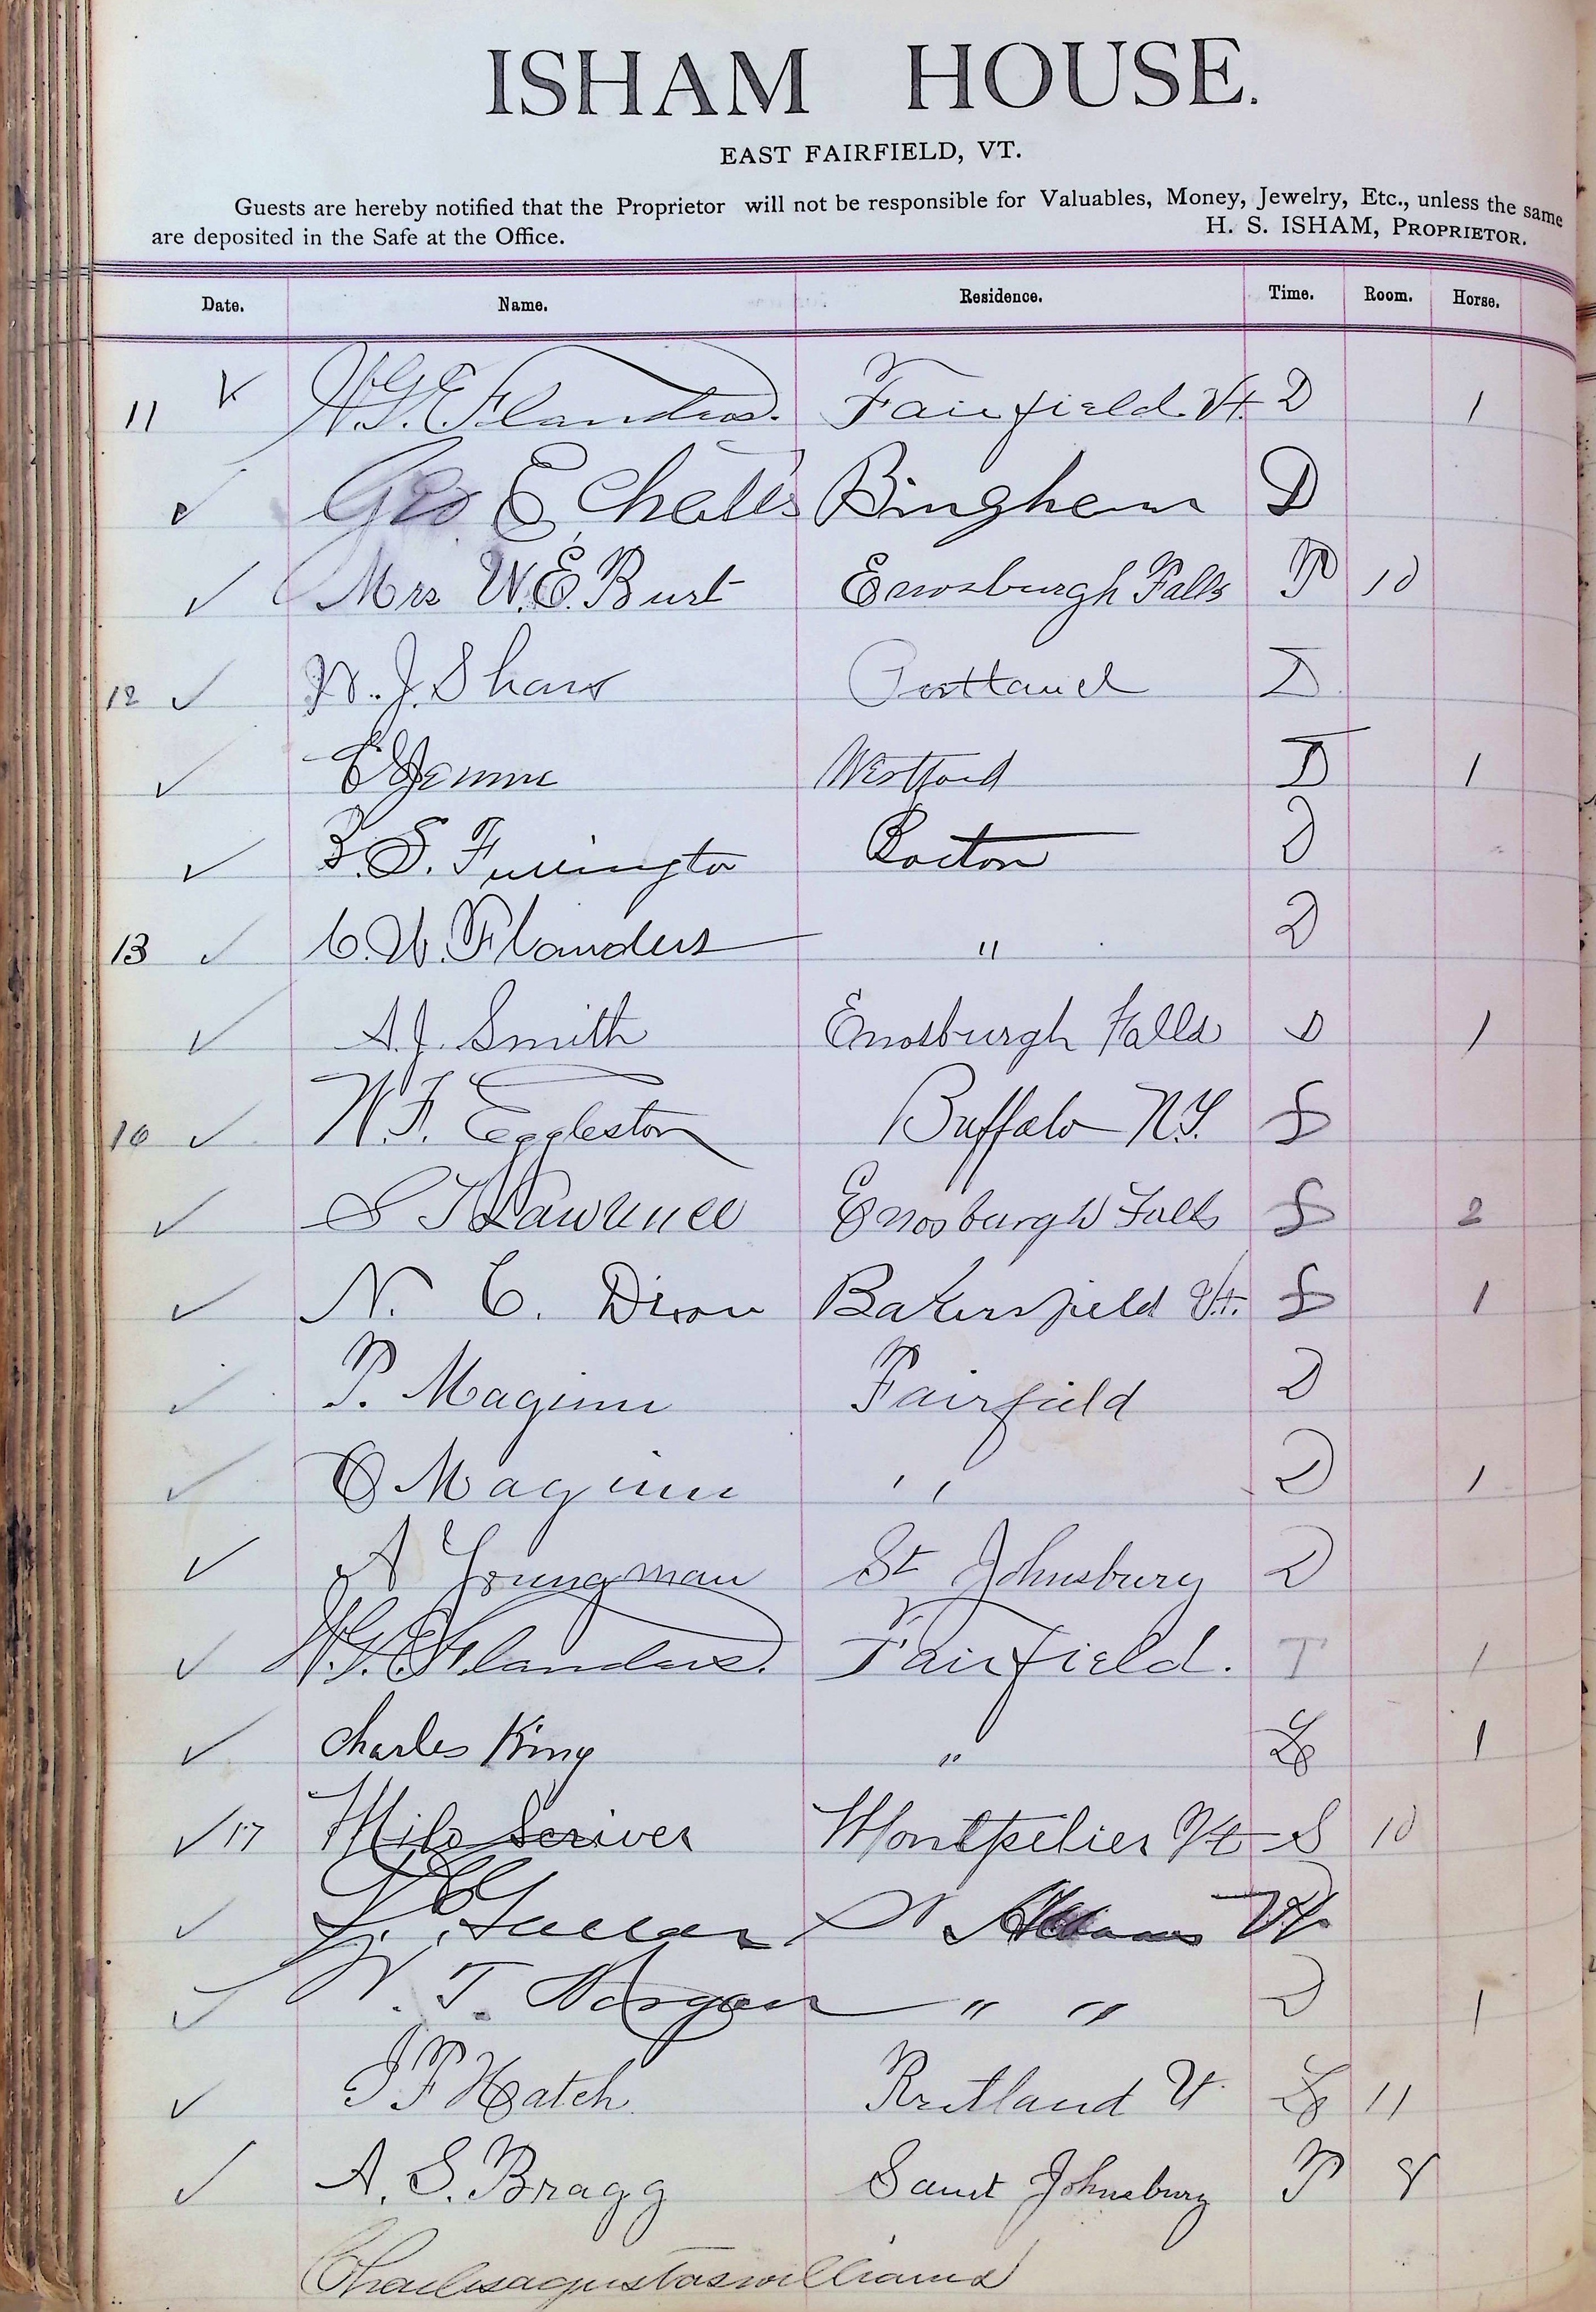 ISHAM HOUSE.
EAST FAIRFIELD, VT.
Guests are hereby notified that the Proprietor will not be responsible for Valuables, Money, Jewelry, Etc., unless the same
are deposited in the Safe at the Office. H. S. ISHAM, PROPRIETOR.
Date. Name. Residence. Time. Room. Horse.
11 W.G.E. Flanders. Fairfield. Vt. D 1
Geo E, Bingham D
Mrs W.E. Burt Enosburgh Falls T 10
12 W. J. Shaw Portland D
Westford D 1
S. Boston D
13 C. W. Flanders " D
A. J. Smith Enosburgh Falls D 1
16 W. F. Eggleston Buffalo N.Y. S
S T Lawrence Enosburgh Falls S 2
N. C. Dixon Bakersfield Vt. S 1
P. Maginn Fairfield D
C Maginn " D 1
A Youngman St Johnsbury D
W.G.E. Flanders. Fairfield. T 1
Charles King " 1
17 Milo Scriver Montpelier Vt S 10
St Albans Vt
W. T. Morgan " " D 1
J F Hatch Rutland Vt 11
A. S. Bragg Saint Johnsbury T 8
Charlesagustaswilliams